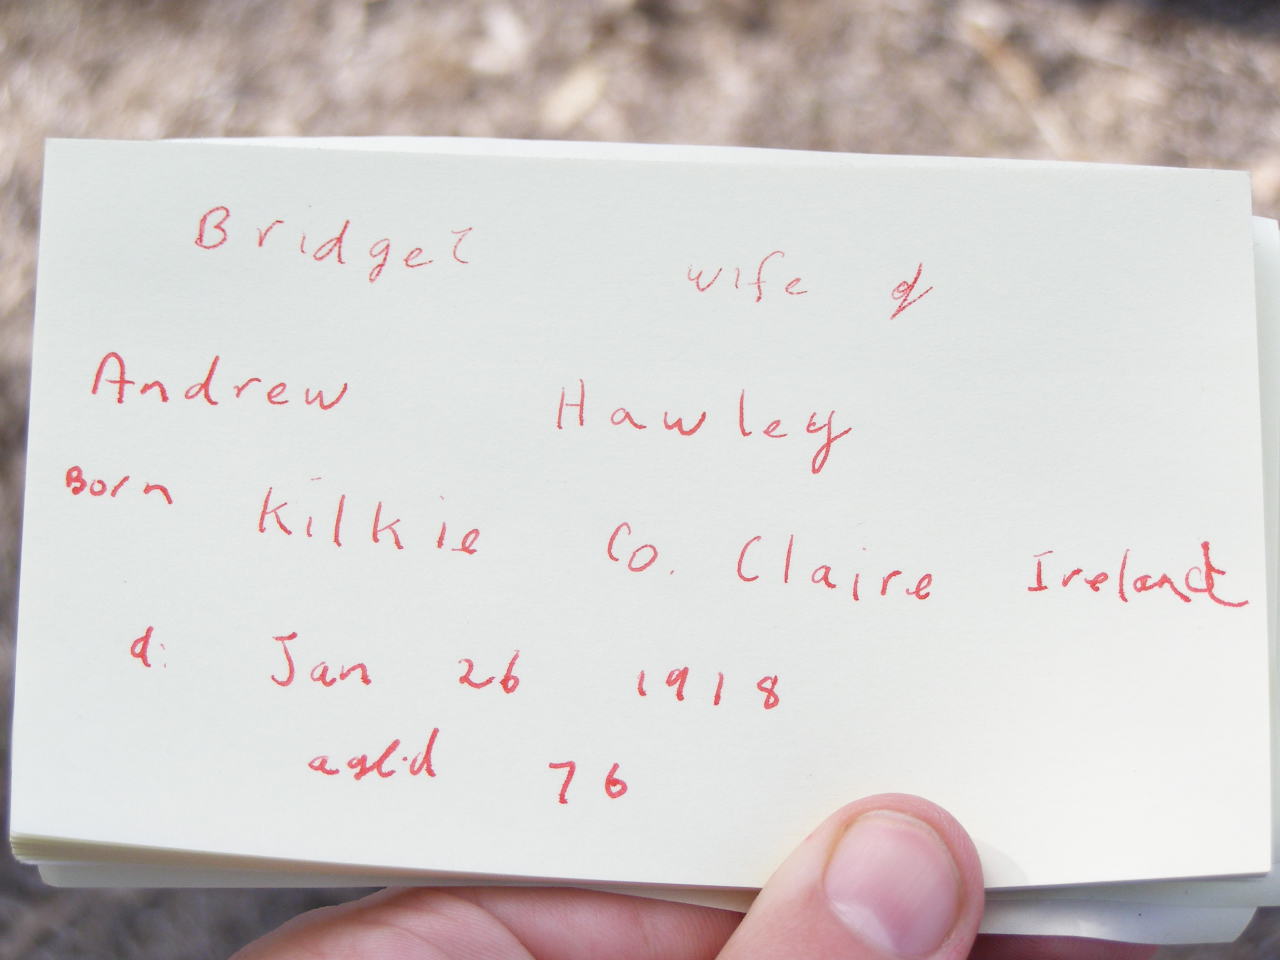 Bridget wife of
Andrew Hawley
Born Kilkie Co. Claire Ireland
d: Jan 26 1918
aged 76